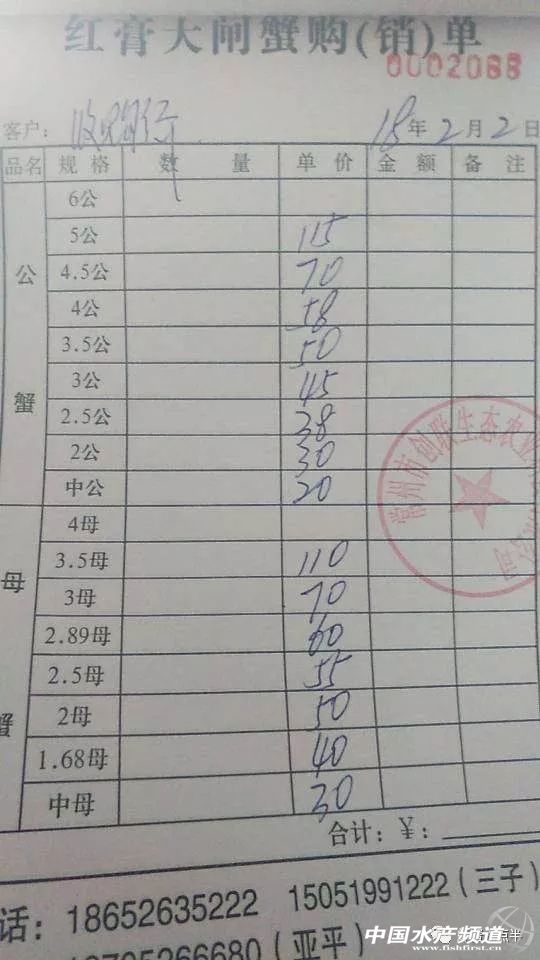 红膏大闸蟹购(销)单
0002088
客户: 收购行 18年2月2日
品名 规格 数量 单价 金额 备注
公蟹
6公
5公 115
4.5公 70
4公 58
3.5公 50
3公 45
2.5公 38
2公 30
中公 20
母蟹
4母
3.5母 110
3母 70
2.89母 60
2.5母 55
2母 50
1.68母 40
中母 30
常州市创联生态农业
公司
合计:¥:
话:18652635222 15051991222(三子)
266680(亚平)
中国水产频道
www.fishfirst.cn
点半